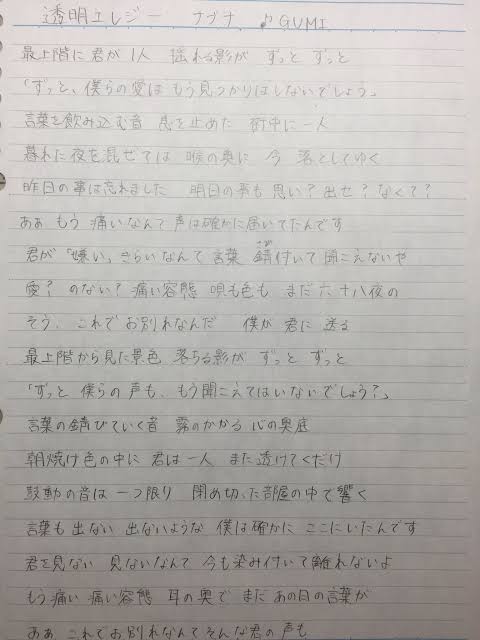 透明エレジー ナブナ ♪GUMI
最上階に君が1人 揺れる影が ずっと ずっと
「ずっと、僕らの愛は もう見つかりはしないでしょう」
言葉を飲み込む音 息を止めた 街中に一人
暮れた夜を混ぜては 喉の奥に 今 落としてゆく
昨日の事は忘れました 明日の事も 思い?出せ?なくて?
ああ もう 痛いなんて 声は確かに届いてたんです
君が「嫌い」きらいなんて 言葉 錆付いて 聞こえないや
さび
愛?のない?痛い容態 唄も色も まだ六十八夜の
そう、これでお別れなんだ 僕が 君に 送る
最上階から見た景色 落ちる影が ずっと ずっと
「ずっと 僕らの声も、もう聞こえてはいないでしょう?」
言葉の錆びていく音 霧のかかる 心の奥底
朝焼け色の中に 君は一人 また透けてくだけ
鼓動の音は 一つ限り 閉め切った部屋の中で響く
言葉も 出ない 出ないような 僕は確かに ここにいたんです
君を見ない 見ないなんて 今も染み付いて離れないよ
もう痛い 痛い容態 耳の奥で まだ あの日の言葉が
ああ これでお別れなんて そんな君の声も